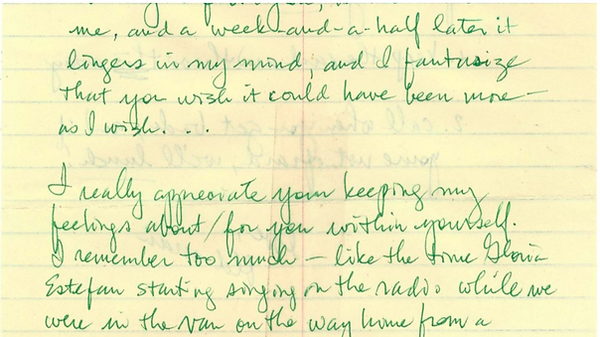 me, and a week-and-a-half later it
lingers in my mind, and I fantasize
that you wish it could have been more —
as I wish. . .
I really appreciate your keeping my
feelings about/for you within yourself.
I remember too much — like the time Gloria
Estefan starting singing on the radio while we
were in the van on the way home from a